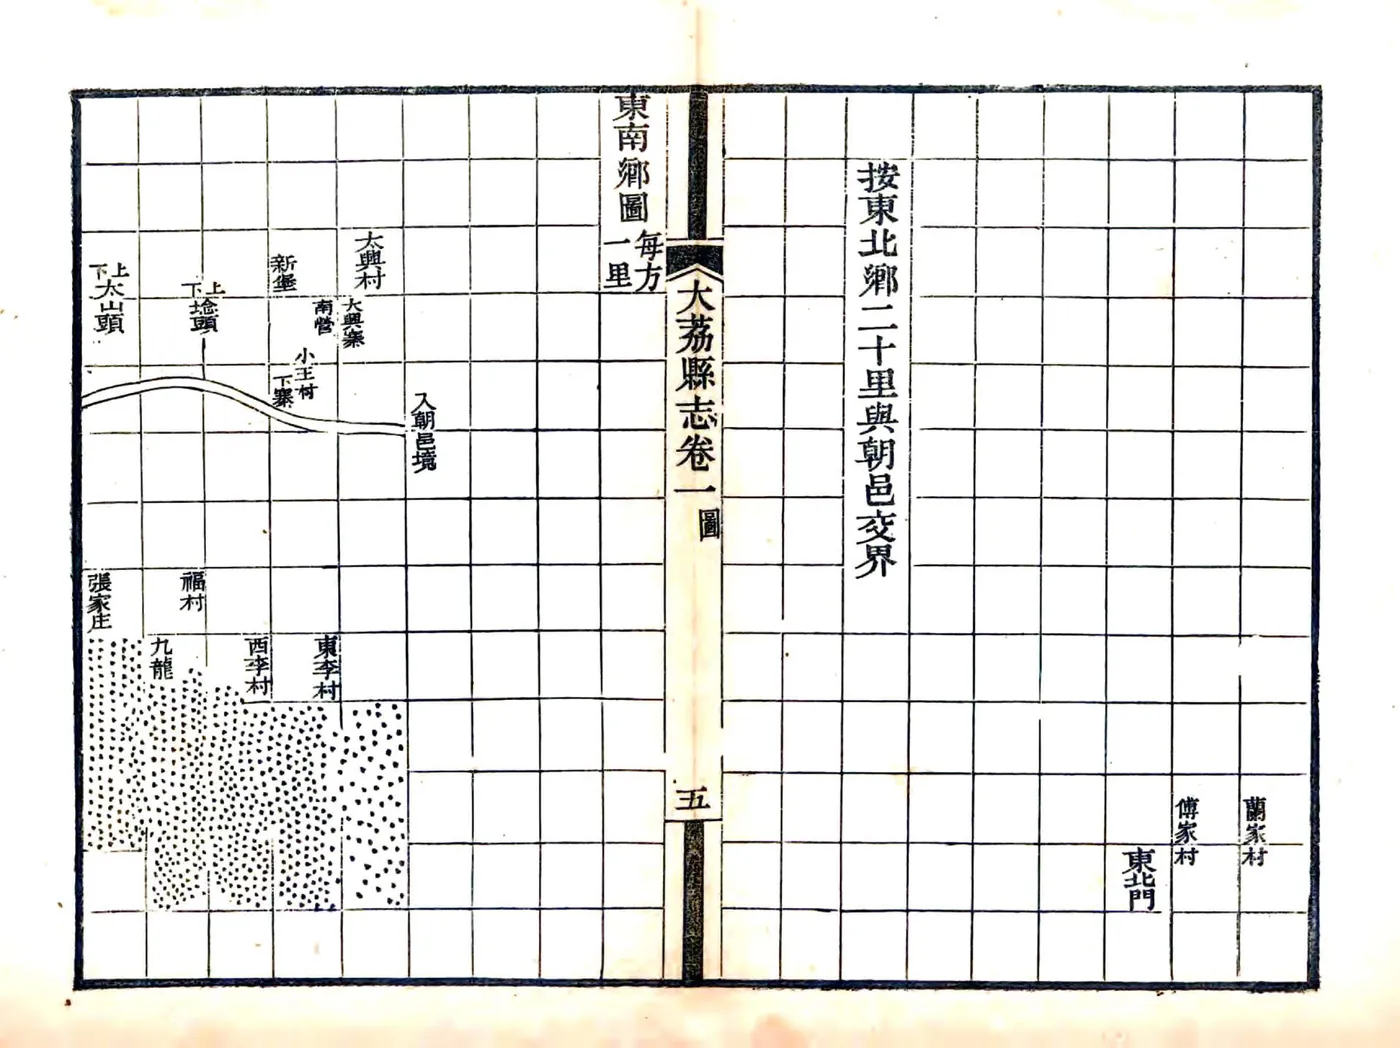 按東北鄉二十里與朝邑交界
蘭家村
傅家村
東北門
大荔縣志卷一
圖
五
東南鄉圖
每方
一里
太興村
大興寨
南營
新堡
小王村
下寨
入朝邑境
上
下
墖頭
上
下
太山頭
東李村
西李村
福村
九龍
張家庄